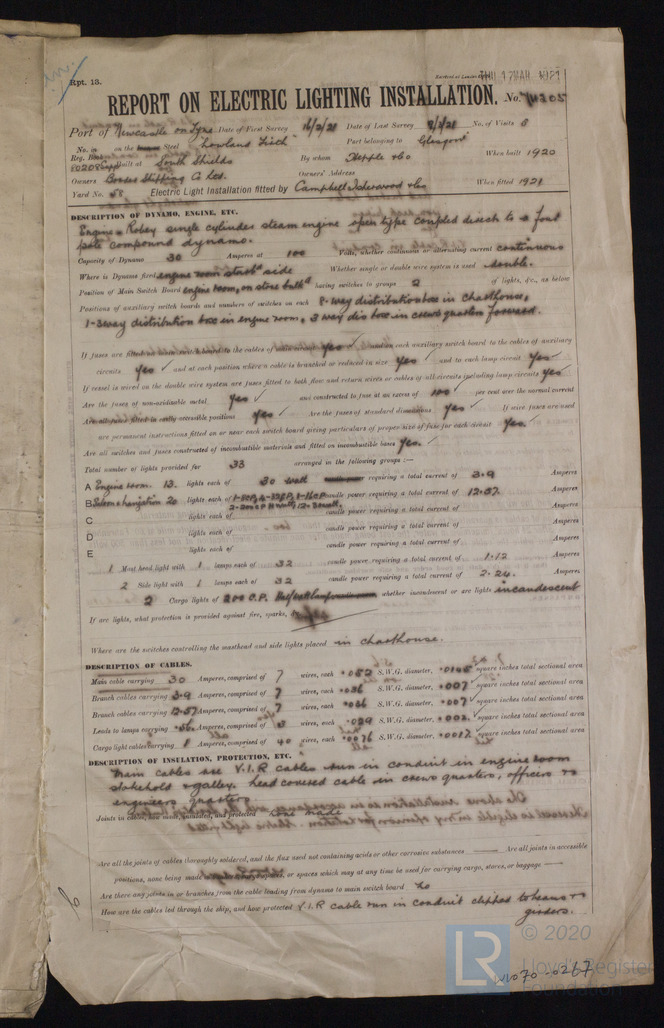 Rpt. 13.
REPORT ON ELECTRIC LIGHTING INSTALLATION. No. 74305
Port of Newcastle on Tyne Date of First Survey 16/2/21 Date of Last Survey 8/3/21 No. of Visits 5
No. in Reg. Book on the Steel "Lowland Fisch" Port belonging to Glasgow
Built at South Shields By whom Hepple & Co When built 1920
Owners Shipping Co Ltd. Owners' Address
Yard No. 58 Electric Light Installation fitted by Campbell Isherwood & Co When fitted 1921
DESCRIPTION OF DYNAMO, ENGINE, ETC.
Engine. Robey single cylinder steam engine open type coupled direct to a four
pole compound dynamo.
Capacity of Dynamo 30 Amperes at 100 Volts, whether continuous or alternating current continuous
Where is Dynamo fixed engine room starbd side Whether single or double wire system is used double.
Position of Main Switch Board engine room, on store bulkd having switches to groups 2 of lights, &c., as below
Positions of auxiliary switch boards and numbers of switches on each 8-way distribution box in charthouse,
1-3way distribution box in engine room, 3 way dis box in crews quarters forward.
If fuses are fitted on main switch board to the cables of main circuit yes and on each auxiliary switch board to the cables of auxiliary
circuits yes and at each position where a cable is branched or reduced in size yes and to each lamp circuit yes
If vessel is wired on the double wire system are fuses fitted to both flow and return wires or cables of all circuits including lamp circuits yes
Are the fuses of non-oxidizable metal yes and constructed to fuse at an excess of 100 per cent over the normal current
Are all fuses fitted in easily accessible positions yes Are the fuses of standard dimensions yes If wire fuses are used
are permanent instructions fitted on or near each switch board giving particulars of proper size of fuse for each circuit yes.
Are all switches and fuses constructed of incombustible materials and fitted on incombustible bases yes.
Total number of lights provided for 33 arranged in the following groups :—
A Engine room. 13. lights each of 30 watt requiring a total current of 3.9 Amperes
B Saloon & navigation 20 lights each of candle power requiring a total current of 12.57. Amperes
C lights each of candle power requiring a total current of Amperes
D lights each of candle power requiring a total current of Amperes
E lights each of candle power requiring a total current of Amperes
1 Mast head light with 1 lamps each of 32 candle power requiring a total current of 1.12 Amperes
2 Side light with 1 lamps each of 32 candle power requiring a total current of 2.24. Amperes
2 Cargo lights of 200 C.P. whether incandescent or arc lights incandescent
If arc lights, what protection is provided against fire, sparks, &c.
Where are the switches controlling the masthead and side lights placed in charthouse.
DESCRIPTION OF CABLES.
Main cable carrying 30 Amperes, comprised of 7 wires, each .052 S.W.G. diameter, .0145 square inches total sectional area
Branch cables carrying 3.9 Amperes, comprised of 7 wires, each .036 S.W.G. diameter, .007 square inches total sectional area
Branch cables carrying 12.57 Amperes, comprised of 7 wires, each .036 S.W.G. diameter, .007 square inches total sectional area
Leads to lamps carrying .56 Amperes, comprised of 3 wires, each .029 S.W.G. diameter, .002 square inches total sectional area
Cargo light cables carrying 1 Amperes, comprised of 40 wires, each .0076 S.W.G. diameter, .0017 square inches total sectional area
DESCRIPTION OF INSULATION, PROTECTION, ETC.
Main cables are V.I.R cables run in conduit in engine room
stokehold & galley. Lead covered cable in crews quarters, officers &
engineers quarters.
Joints in cables, how made, insulated, and protected none made
Are all the joints of cables thoroughly soldered, and the flux used not containing acids or other corrosive substances — Are all joints in accessible
positions, none being made in bunkers, or spaces which may at any time be used for carrying cargo, stores, or baggage —
Are there any joints in or branches from the cable leading from dynamo to main switch board no
How are the cables led through the ship, and how protected V.I.R cable run in conduit clipped to beams &
girders.
© 2020
LR Lloyd's Register
Foundation
W1070-0267